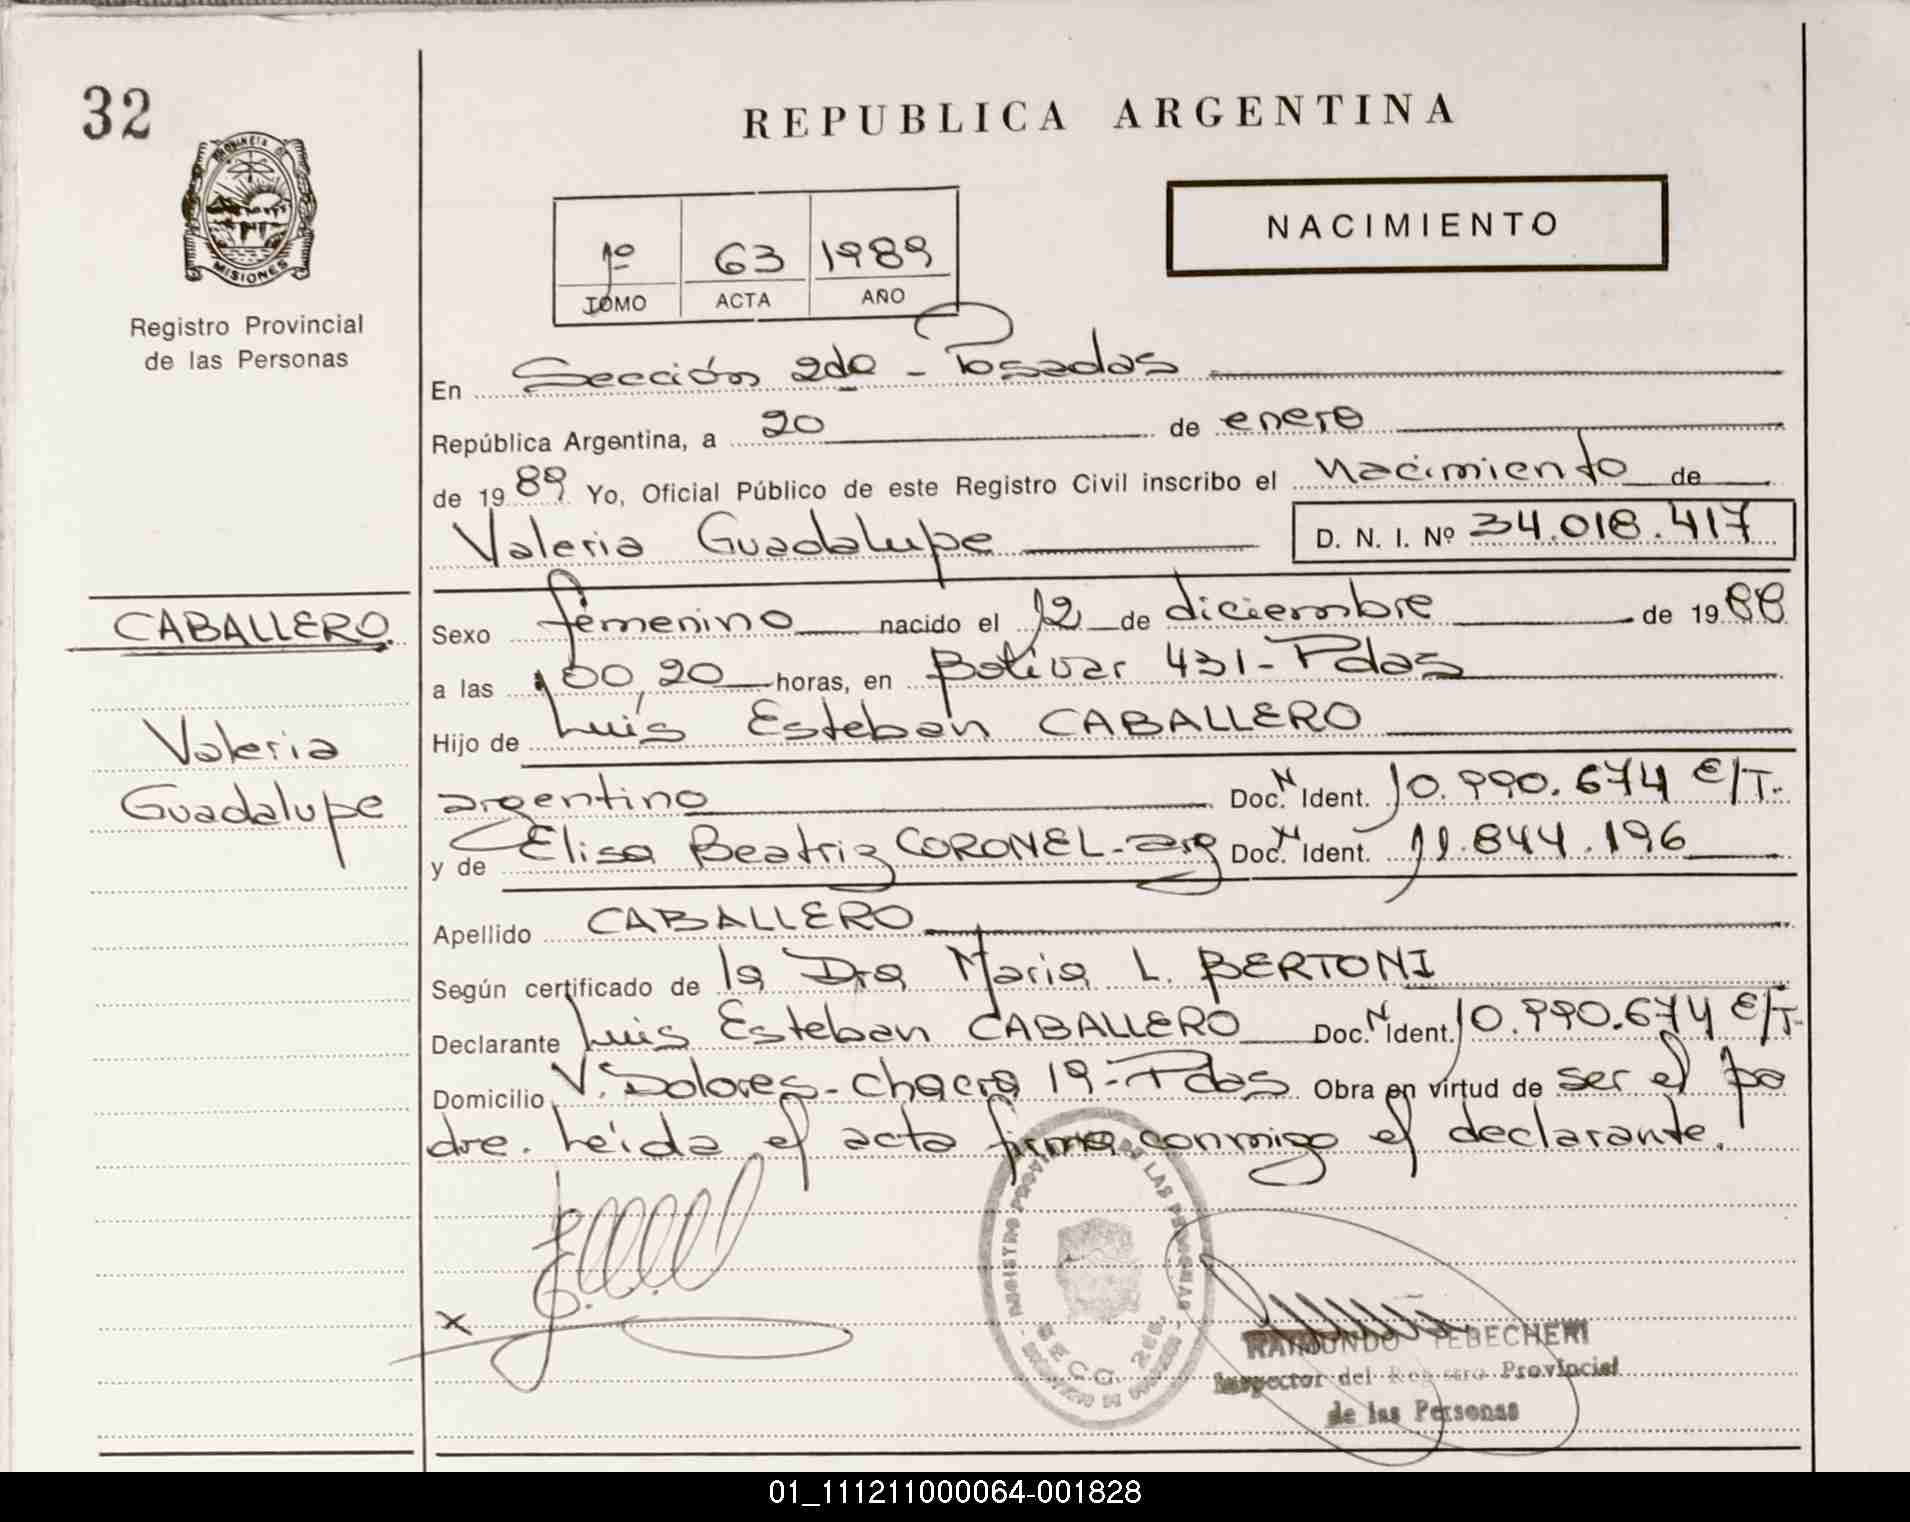 32
PROVINCIA DE
MISIONES
Registro Provincial
de las Personas
REPUBLICA ARGENTINA
NACIMIENTO
1º 63 1989
TOMO ACTA AÑO
En Sección 2da - Posadas
República Argentina, a 20 de enero
de 1989 Yo, Oficial Público de este Registro Civil inscribo el Nacimiento de
Valeria Guadalupe D. N. I. Nº 34.018.417
CABALLERO
Valeria
Guadalupe
Sexo femenino nacido el 12 de diciembre de 1988
a las 00,20 horas, en Bolívar 431-Pdas
Hijo de Luis Esteban CABALLERO
argentino Doc. N Ident. 10.990.674 E/T.
y de Elisa Beatriz CORONEL-arg Doc. N Ident. 11.844.196
Apellido CABALLERO
Según certificado de la Dra Maria L. BERTONI
Declarante Luis Esteban CABALLERO Doc. N Ident. 10.990.674 E/T.
Domicilio V. Dolores-chacra 19-Pdas Obra en virtud de ser el pa
dre. Leída el acta firma conmigo el declarante.
x
REGISTRO PROVINCIAL DE LAS PERSONAS
SECC. 2da.
RAIMUNDO TEBECHERI
Inspector del Registro Provincial
de las Personas
01_111211000064-001828